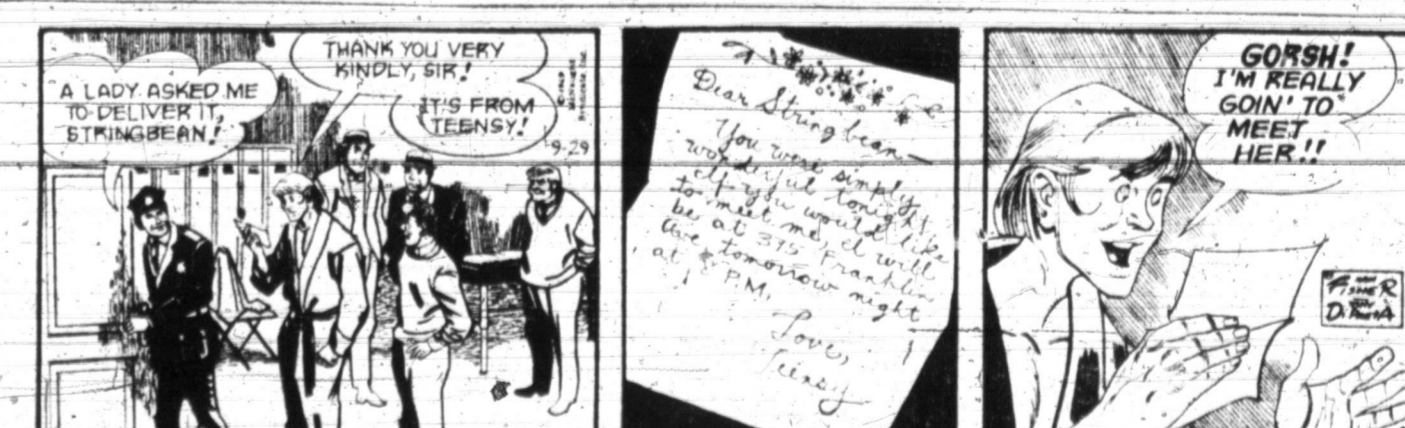 A LADY ASKED ME
TO DELIVER IT,
STRINGBEAN!
THANK YOU VERY
KINDLY, SIR!
IT'S FROM
TEENSY!
9-29
Dear Stringbean—
You were simply
wonderful tonight.
If you would like
to meet me, I will
be at 375 Franklin
Ave tomorrow night
at P.M.
Love,
Teensy
GORSH!
I'M REALLY
GOIN' TO
MEET
HER!!
FISHER